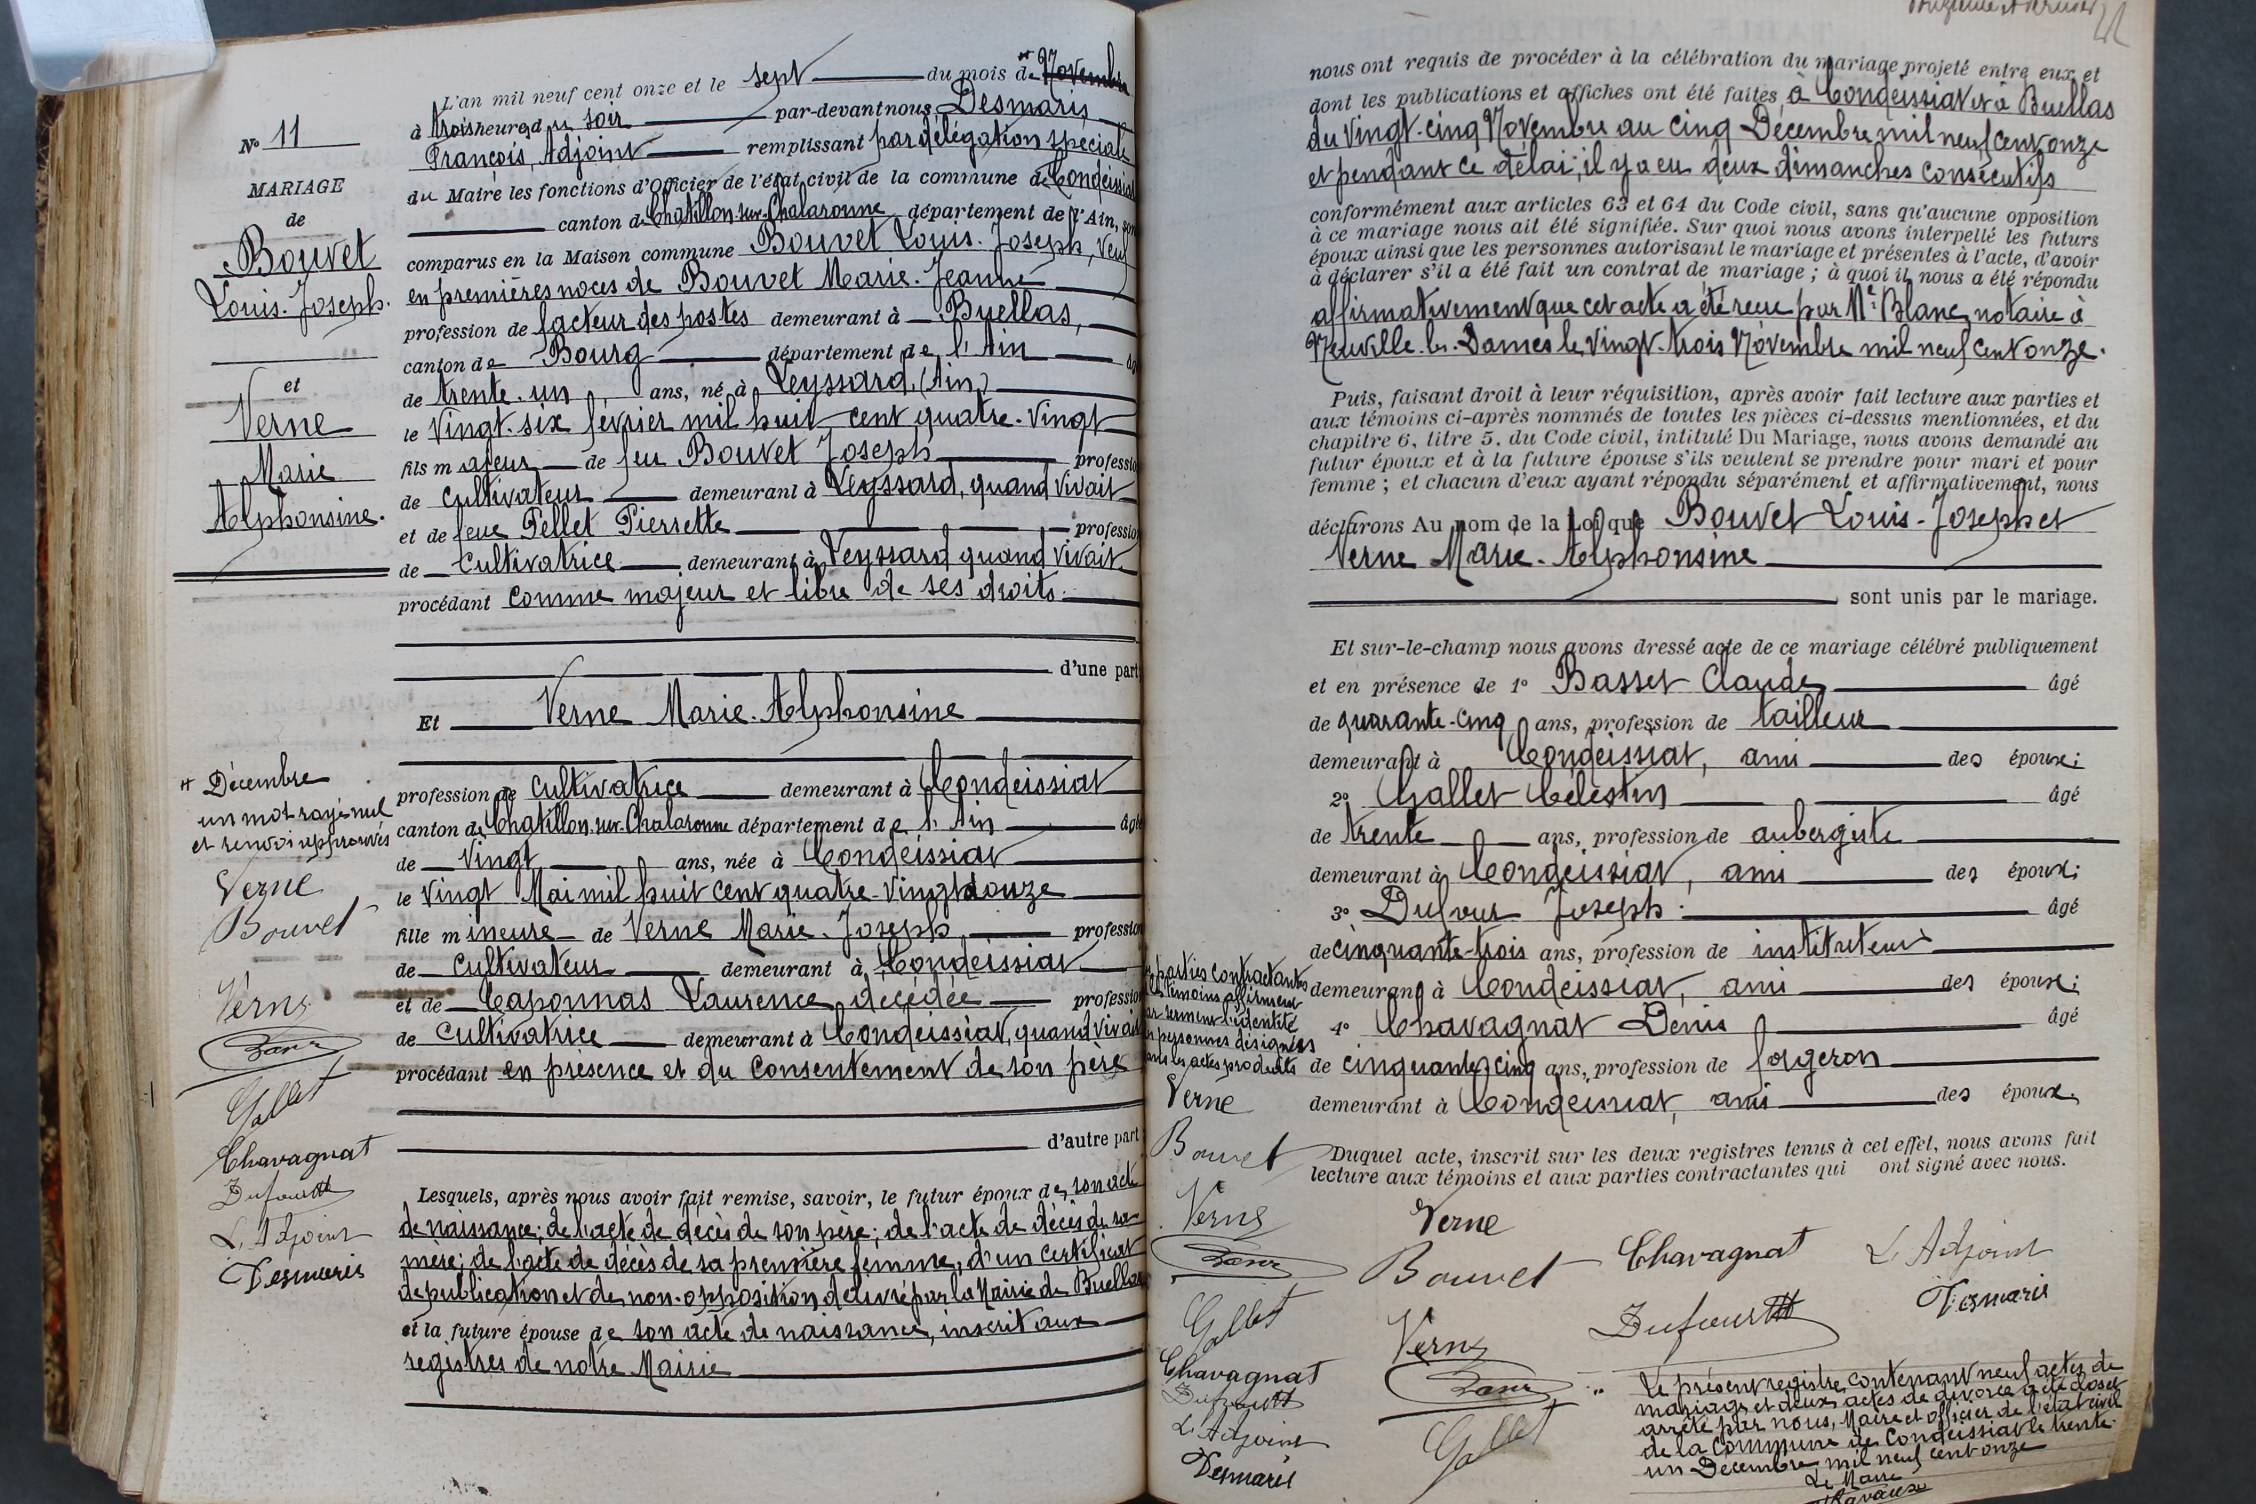 No 11
MARIAGE
de
Bouvet
Louis-Joseph.
et
Verne
Marie
Alphonsine.
L'an mil neuf cent onze et le sept du mois de Novembre
à trois heures du soir par-devant nous Desmaris
François, Adjoint remplissant par délégation spéciale
du Maire les fonctions d'Officier de l'état civil de la commune de Condeissiat
canton de Chatillon-sur-Chalaronne département de l'Ain, sont
comparus en la Maison commune Bouvet Louis-Joseph, veuf
en premières noces de Bouvet Marie-Jeanne
profession de facteur des postes demeurant à Buellas,
canton de Bourg département de l'Ain âgé
de trente-un ans, né à Leyssard (Ain)
le vingt-six février mil huit cent quatre-vingt
fils majeur de feu Bouvet Joseph profession
de cultivateur demeurant à Leyssard, quand vivait
et de feue Pellet Pierrette profession
de cultivatrice demeurant à Leyssard quand vivait
procédant comme majeur et libre de ses droits.
d'une part
Et Verne Marie-Alphonsine
profession de cultivatrice demeurant à Condeissiat
canton de Chatillon-sur-Chalaronne département de l'Ain âgée
de vingt ans, née à Condeissiat
le vingt Mai mil huit cent quatre-vingt onze
fille mineure de Verne Marie-Joseph profession
de cultivateur demeurant à Condeissiat
et de Caponnas Laurence, décédée profession
de cultivatrice demeurant à Condeissiat, quand vivait
procédant en présence et du consentement de son père
d'autre part
Lesquels, après nous avoir fait remise, savoir, le futur époux de son acte
de naissance; de l'acte de décès de son père; de l'acte de décès de sa
mère; de l'acte de décès de sa première femme, d'un certificat
de publication et de non-opposition délivré par la Mairie de Buellas
et la future épouse de son acte de naissance, inscrit aux
registres de notre Mairie
Décembre
un mot rayé nul
et renvoi approuvés
Verne
Bouvet
Verne
Gallet
Chavagnat
Dufour
L'Adjoint
Desmaris
nous ont requis de procéder à la célébration du mariage projeté entre eux et
dont les publications et affiches ont été faites à Condeissiat et à Buellas
du vingt-cinq Novembre au cinq Décembre mil neuf cent onze
et pendant ce délai, il y a eu deux dimanches consécutifs
conformément aux articles 63 et 64 du Code civil, sans qu'aucune opposition
à ce mariage nous ait été signifiée. Sur quoi nous avons interpellé les futurs
époux ainsi que les personnes autorisant le mariage et présentes à l'acte, d'avoir
à déclarer s'il a été fait un contrat de mariage ; à quoi il nous a été répondu
affirmativement que cet acte a été reçu par Me Blanc, notaire à
Neuville-les-Dames le vingt-trois Novembre mil neuf cent onze.
Puis, faisant droit à leur réquisition, après avoir fait lecture aux parties et
aux témoins ci-après nommés de toutes les pièces ci-dessus mentionnées, et du
chapitre 6, titre 5, du Code civil, intitulé Du Mariage, nous avons demandé au
futur époux et à la future épouse s'ils veulent se prendre pour mari et pour
femme ; et chacun d'eux ayant répondu séparément et affirmativement, nous
déclarons Au nom de la Loi que Bouvet Louis-Joseph et
Verne Marie-Alphonsine
sont unis par le mariage.
Et sur-le-champ nous avons dressé acte de ce mariage célébré publiquement
et en présence de 1° Basset Claude âgé
de quarante-cinq ans, profession de tailleur
demeurant à Condeissiat, ami des époux;
2° Gallet Célestin âgé
de trente ans, profession de aubergiste
demeurant à Condeissiat, ami des époux;
3° Dufour Joseph âgé
de cinquante-trois ans, profession de instituteur
demeurant à Condeissiat, ami des époux;
4° Chavagnat Denis âgé
de cinquante-cinq ans, profession de forgeron
demeurant à Condeissiat, ami des époux,
Duquel acte, inscrit sur les deux registres tenus à cet effet, nous avons fait
lecture aux témoins et aux parties contractantes qui ont signé avec nous.
parties contractantes
témoins affirment
serment l'identité
personnes désignées
dans les actes produits
Verne
Bouvet
Verne
Gallet
Chavagnat
Dufour
L'Adjoint
Desmaris
Verne
Bouvet
Verne
Gallet
Chavagnat
Dufour
L'Adjoint
Desmaris
Le présent registre contenant neuf actes de
mariage et deux actes de divorce a été clos et
arrêté par nous, Maire et officier de l'état civil
de la Commune de Condeissiat le trente-
un Décembre mil neuf cent onze
Le Maire